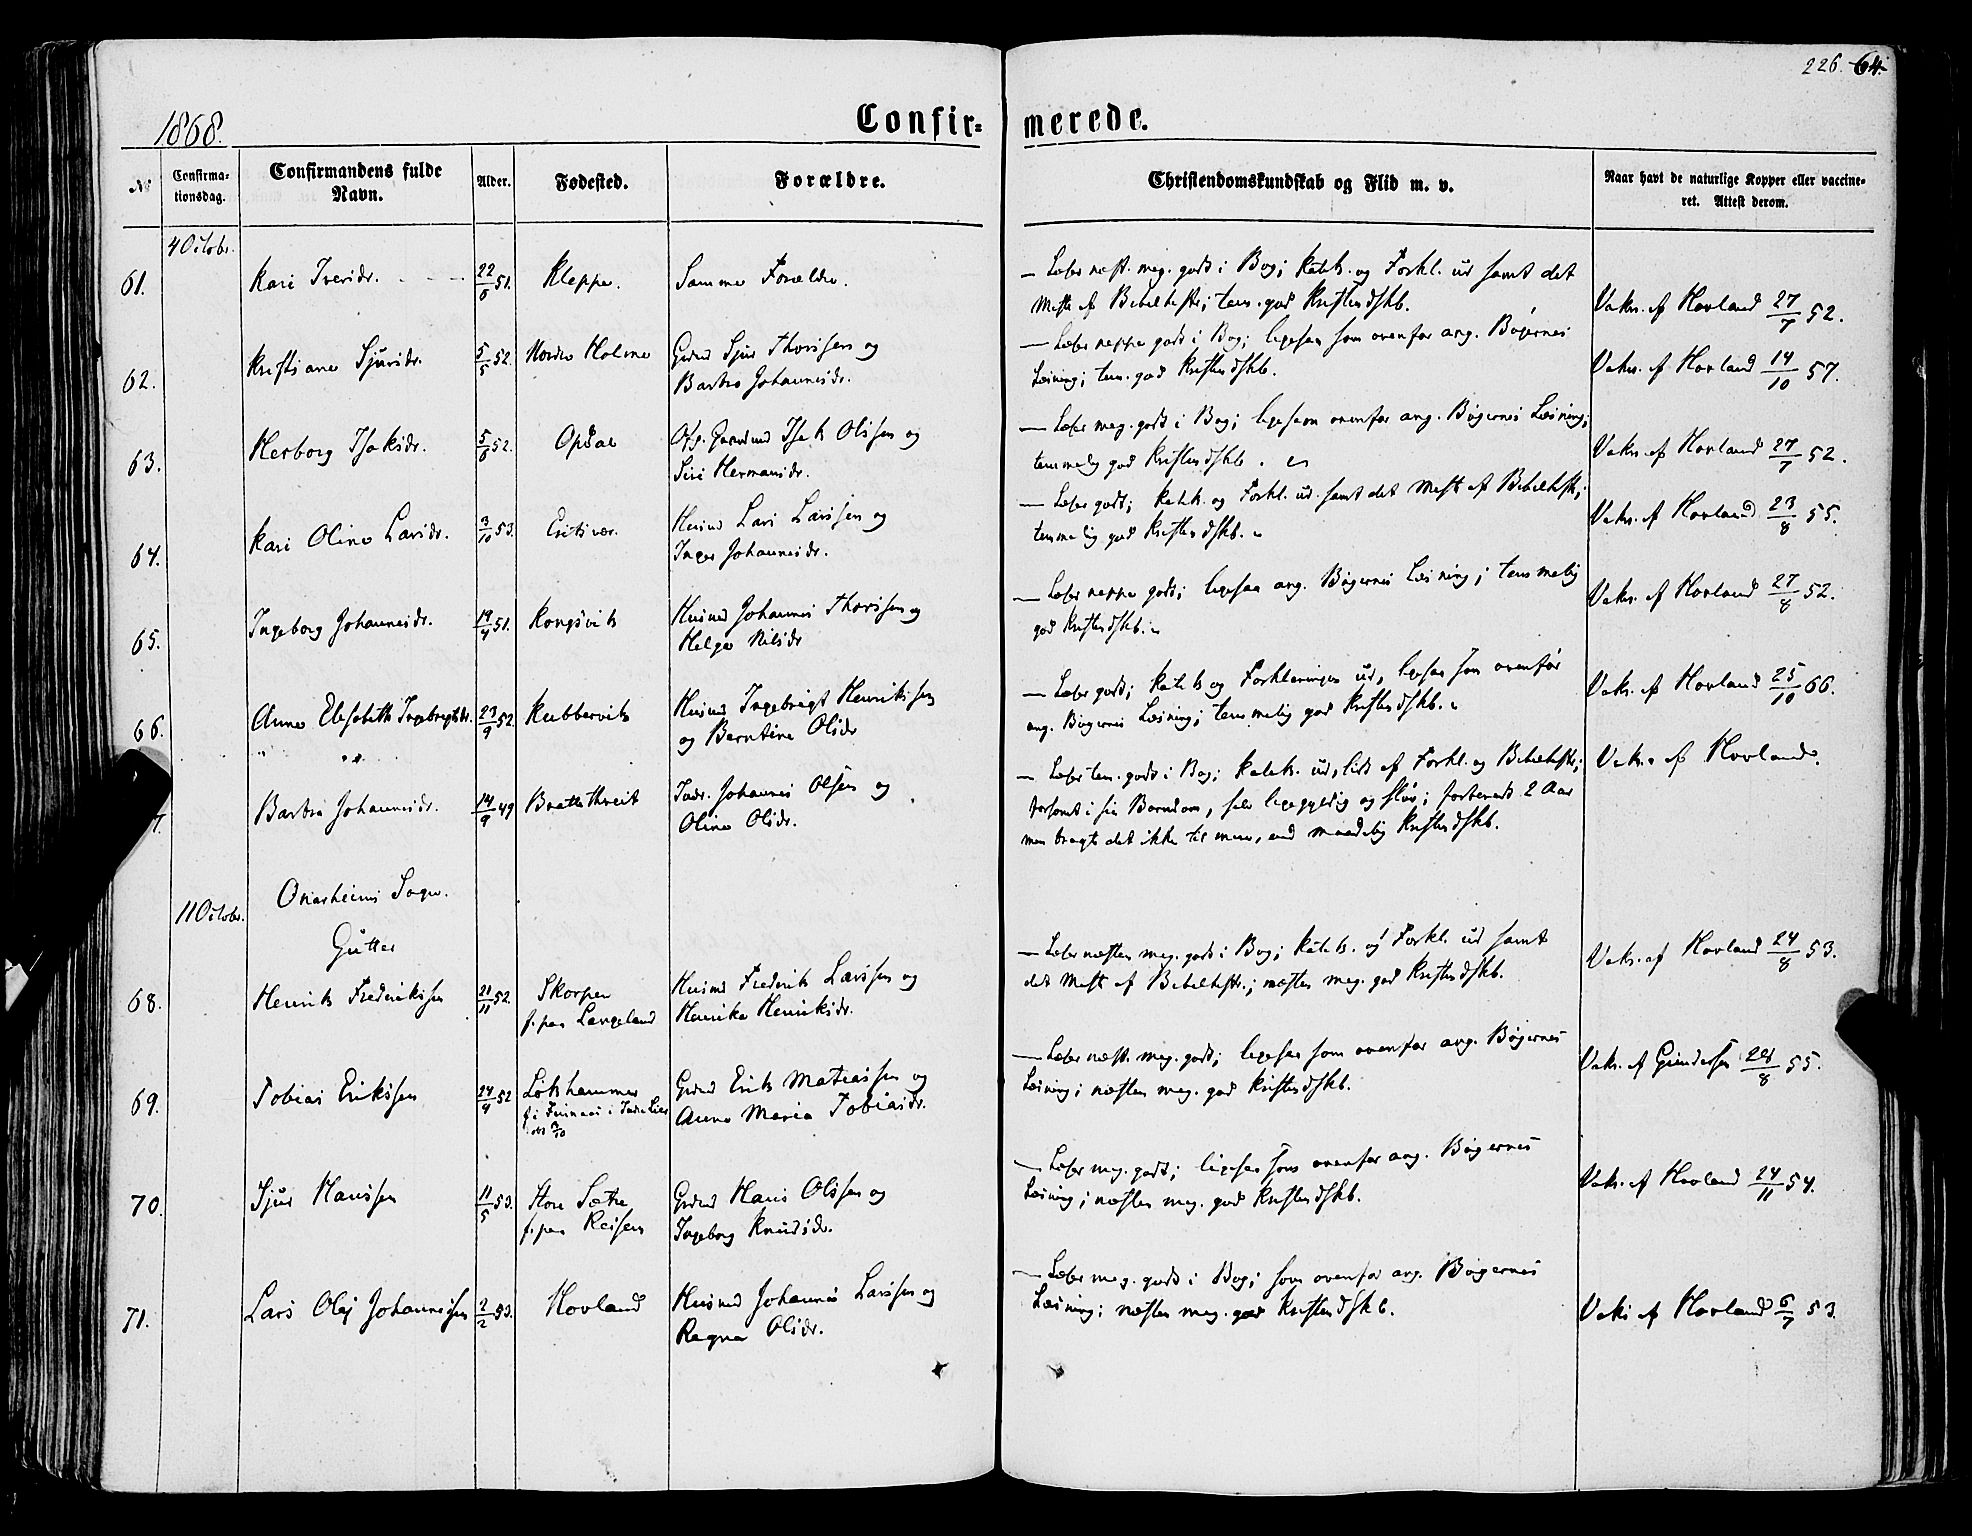 226. 64.
1868.
Confir-
merede.
№
Confirma-
tionsdag.
Confirmandens fulde
Navn.
Alder.
Fødested.
Forældre.
Christendomskundskab og Flid m. v.
Naar havt de naturlige Kopper eller vaccine-
ret. Attest derom.
4 Octobr.
61. Kari Iversdr. 22/6 51. Kleppe. Samme Forældre.
— Læser næst. meg. godt i Bog; Katek. og Forkl. ud samt det
Meste af Bibelhist.; tem. god Kristendskb.
Vakr. af Hovland 27/7 52.
62. Kristiane Sjursdr. 5/5 52. Nordre Holme Grdmd Sjur Thorsen og
Barbro Johannesdr.
— Læser neppe godt i Bog; ligesaa som ovenfor ang. Bøgernes
Læsning; tem. god Kristendskb.
Vakr. af Hovland 14/10 57.
63. Herborg Isaksdr. 5/6 52. Opdal Isak Olssen og
Siri Hermansdr.
— Læser meg. godt i Bog; ligesom ovenfor ang. Bøgernes Læsning;
temmelig god Kristendskb.
Vakr. af Hovland 27/7 52.
64. Kari Oline Larsdr. 3/10 53. Husmd Lars Larssen og
Inger Johannesdr.
— Læser godt; Katek. og Forkl. ud samt det Meste af Bibelhist.;
temmelig god Kristendskb.
Vakr. af Hovland 23/8 55.
65. Ingeborg Johannesdr. 19/4 51. Kongsvik Husmd Johannes Thorssen og
Helga Nilsdr
— Læser neppe godt; ligesaa ang. Bøgernes Læsning; temmelig
god Kristendskb.
Vakr. af Hovland 27/8 52.
66. Anne Elisabeth Ingebrigtsdr. 23/9 52. Kubbervik Husmd Ingebrigt Henrikssen
og Berntine Olsdr
— Læser godt; Katek og Forklaringen ud, ligesaa som ovenfor
ang. Bøgernes Læsning; temmelig god Kristendskb.
Vakr. af Hovland 25/10 66.
7. Barbra Johannesdr. 14/9 49 Brattethveit Indr. Johannes Olsen og
Oline Olsdr.
— Læser tem. godt i Bog; Katek. ud, lidt af Forkl. og Bibelhist.;
forsømt i sin Barndom, selv ligegyldig og sløv; forberedt 2 Aar
men bragte det ikke til mere, end maadelig Kristendskb.
Vakr. af Hovland.
11 Octobr.
Onarheims Sogn.
Gutter
68. Henrik Frederikssen 21/11 52. Skorpen
f. paa Langeland
Husmd Frederik Larssen og
Henrika Henriksdr.
— Læser næsten meg. godt i Bog; Katek. og Forkl. ud samt
det Meste af Bibelhist.; næsten meg. god Kristendskb.
Vakr. af Hovland 24/8 53.
69. Tobias Erikssen 24/4 52 Løkhammer
Grdmd Erik Matiassen og
Anne Maria Tobiasdr.
— Læser næst. meg. godt; ligesaa som ovenfor ang. Bøgernes
Læsning; næsten meg. god Kristendskb.
Vakr. af Gundersen 28/8 55.
70. Sjur Hanssen 11/5 53. Store Sætre
f. paa Reisen
Grdmd Hans Olssen og
Ingeborg Knudsdr.
— Læser meg. godt; ligesaa som ovenfor ang. Bøgernes
Læsning; næsten meg. god Kristendskb.
Vakr. af Hovland 24/11 54.
71. Lars Olaj Johannessen 2/2 53. Hovland Husmd Johannes Larssen og
Ragna Olsdr.
— Læser meg. godt i Bog; som ovenfor ang. Bøgernes
Læsning; næsten meg. god Kristendskb.
Vakr af Hovland 6/7 53.